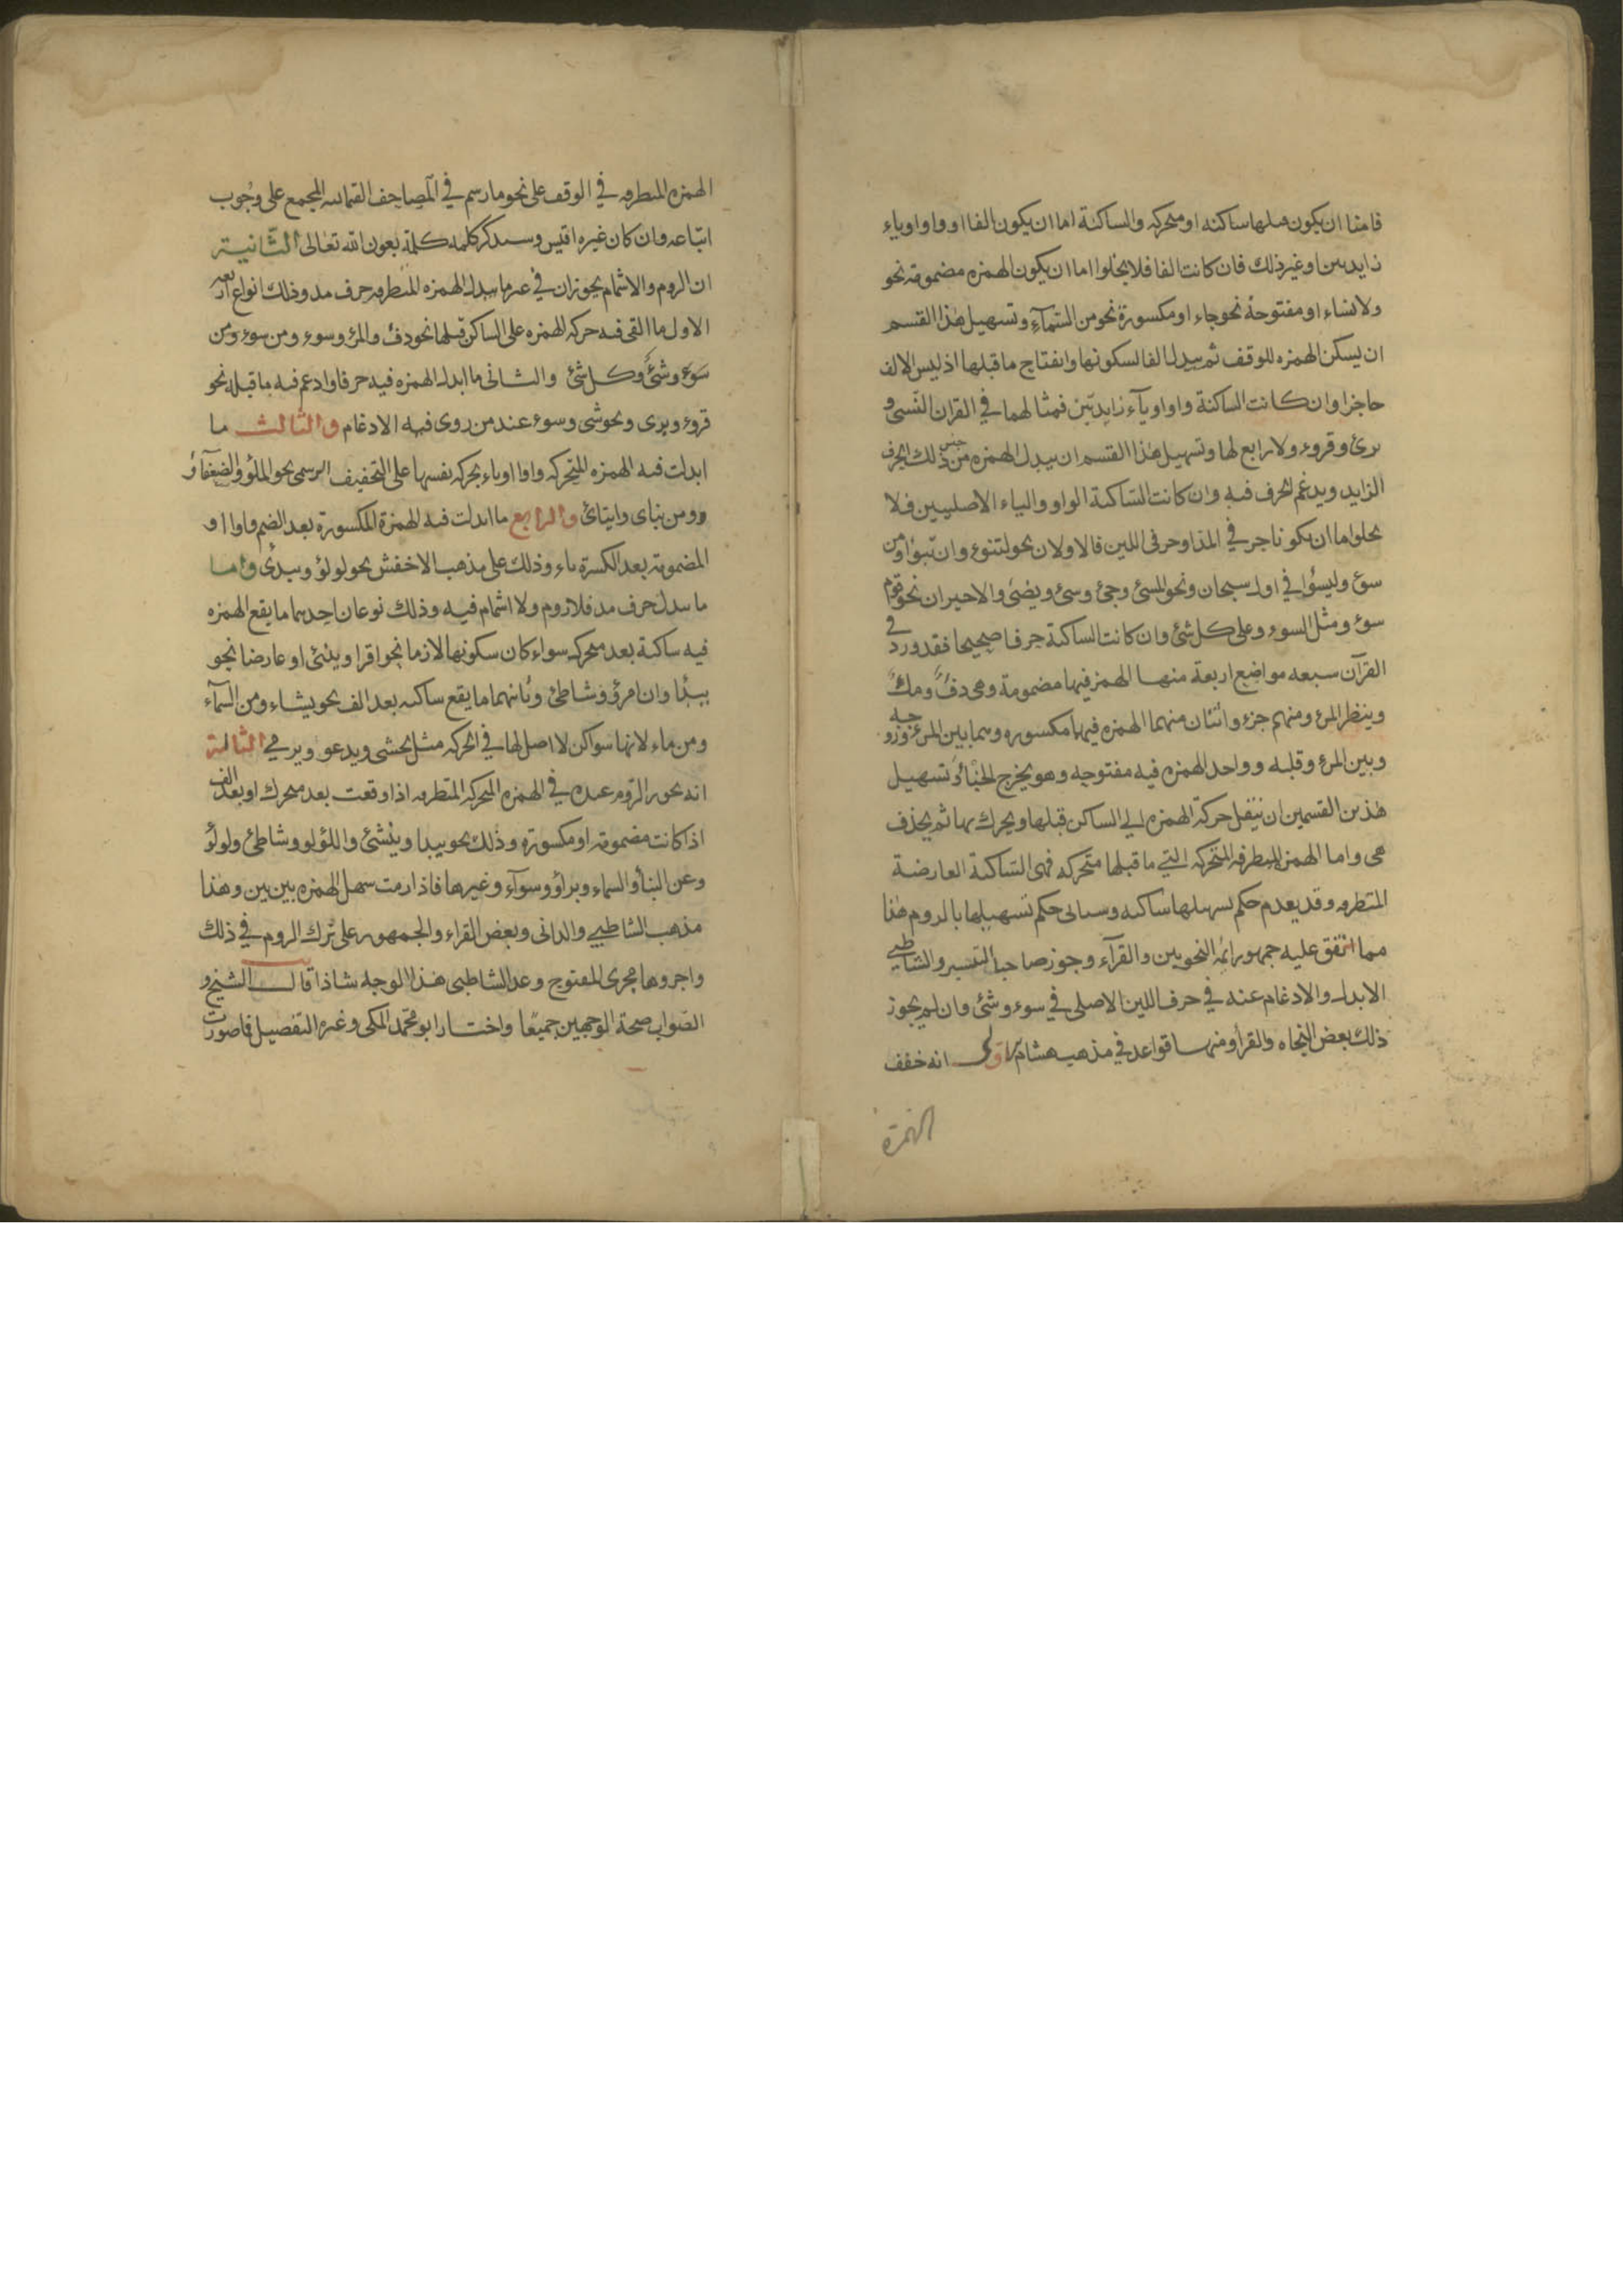 فامّا ان يكون قبلها ساكنه او متحركه والساكنة اما ان يكون الفا او واوا او ياء
زايدتين او غير ذلك فان كانت الفا فلا يخلوا اما ان يكون الهمزه مضمومة نحو
ولا نساء او مفتوحة نحو جاء او مكسورة نحو من السّمآءِ وتسهيل هذا القسم
ان يسكن الهمزه للوقف ثم يبدل الفا لسكونها وانفتاح ما قبلها اذ ليس الالف
حاجزا وان كانت الساكنة واوا او يآء زايدتين فمثالهما في القران النّسئ و
برئ وقروء ولا رابع لها وتسهيل هذا القسم ان يبدل الهمزه من جنس ذلك الحرف
الزايد ويدغم الحرف فيه وان كانت السّاكنة الواو والياء الاصليين فلا
يخلوا اما ان يكونا حرفي المدّ او حرفى اللين فالاولان نحو لتنوء وان تبوأ ومن
سوء وليسؤا في اول سبحان ونحو المسئ وجئ وسئ ويضئ والاخيران نحو قوم
سوء ومثل السوء وعلى كل شئ وان كانت الساكنة حرفا صحيحا فقد ورد في
القرآن سبعه مواضع اربعة منها الهمز فيها مضمومة وهى دفءٌ وملءُ
وينظر المرء ومنهم جزء واثنان منهما الهمزه فيهما مكسوره وهما بين المرء وزوجه
وبين المرء وقلبه وواحد الهمزه فيه مفتوحه وهو يخرج الخبْأَ وتسهيل
هذين القسمين ان ينقل حركة الهمزه الي الساكن قبلها ويحرك بها ثم يحذف
هى واما الهمز المتطرفه المتحركه التي ما قبلها متحركه فهى السّاكنة العارضة
المتطرفه وقد يعدم حكم تسهيلها ساكنه وسياتى حكم تسهيلها بالروم هذا
مما اتفق عليه جمهور ائمّة النحويين والقرآء وجوز صاحب التيسير والشاطبي
الابدال والادغام عنه في حرف اللين الاصلى في سوء وشئ وان لم يجوز
ذلك بعض النحاه والقرأ ومنها قواعد في مذهب هشام الاولى انه خفف
الهمزة
الهمزه المتطرفه في الوقف على نحو ما رسم في المصاحف العثمانيه المجمع على وجُوب
اتباعه وان كان غيره اقيس وسيذكر كلمة كلمة بعون الله تعالى الثّانية
ان الروم والاشمام يجوزان في غير ما يبدل الهمزه المتطرفه حرف مد وذلك انواع اربعه
الاول ما القى فيه حركه الهمزه على الساكن قبلها نحو دفء والمرء وسوء ومن سوء ومن
سَوء وشئٌ وكل شئ والثانى ما ابدل الهمزه فيه حرفا وادغم فيه ما قبله نحو
قروء وبرى ونحو شى وسوء عند من روى فيه الادغام والثالث ما
ابدلت فيه الهمزه المتحركه واوا او ياء بحركه نفسها على التخفيف الرسمى نحو الملؤ والضعفآؤ
ومن نباى وايتائ والرابع ما ابدلت فيه الهمزة المكسورة بعد الضم واوا او
المضمومة بعد الكسرة ياء وذلك على مذهب الاخفش نحو لولؤ ويبدئ واما
ما يبدل حرف مد فلا روم ولا اشمام فيه وذلك نوعان احدهما ما يقع الهمزه
فيه ساكنة بعد متحركه سواء كان سكونها لازما نحو اقرا وينبئ او عارضا نحو
يبدأ وان امرؤ وشاطئ وثانيهما ما يقع ساكنه بعد الف نحو يشاء ومن السمآء
ومن ماء لانها سواكن لا اصل لها في الحركه مثل يخشى ويدعو ويرمي الثالثة
انه يجوز الرّوم عنده في الهمزه المتحركه المتطرفه اذا وقعت بعد متحرك او بعد الف
اذا كانت مضمومة او مكسورة وذلك نحو يبدا وينشئ واللؤلو وشاطئ ولولؤ
وعن النبأ والسماء وبرآؤ وسوآء وغيرها فاذا رمت سهل الهمزه بين بين وهذا
مذهب الشاطبي والدانى وبعض القراء والجمهور على ترك الروم في ذلك
واجروها مجرى المفتوح وعد الشاطبى هذا الوجه شاذا قال الشيخ و
الصّواب صحة الوجهين جميعا واختار ابو محمّد المكى وغيره التفصيل فما صورت